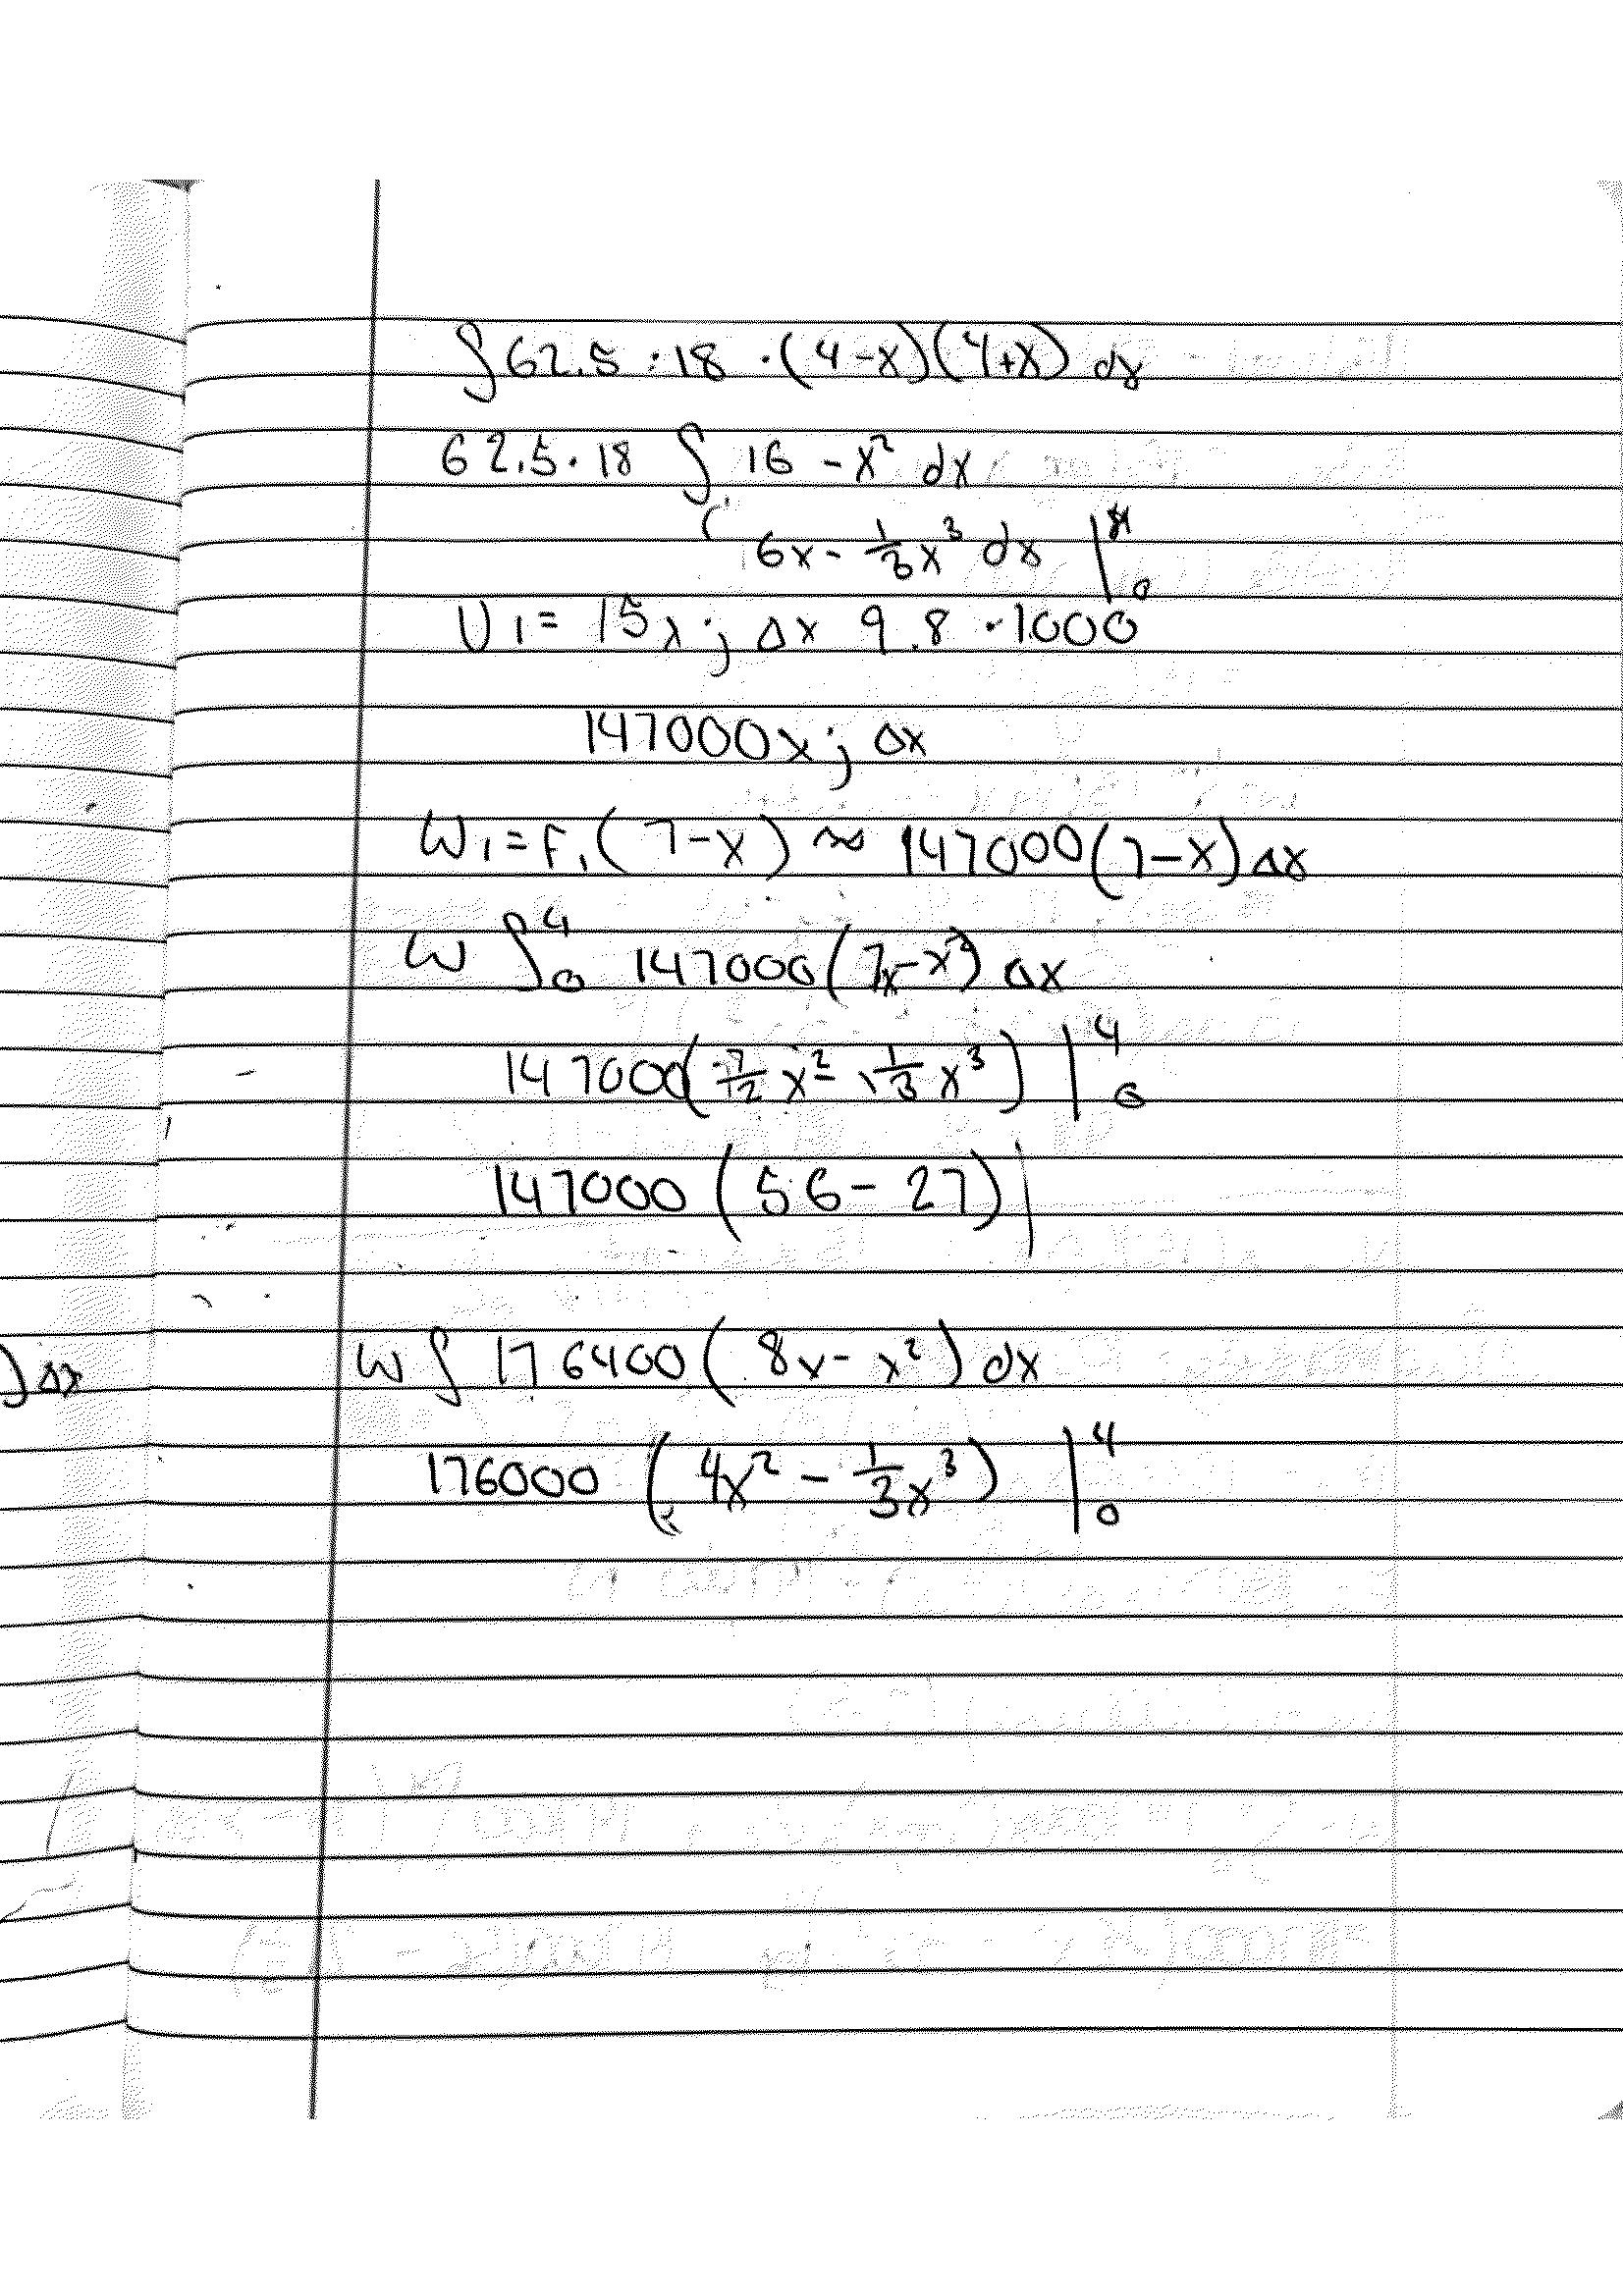 ∫62.5 · 18 · (4-x)(4+x) dx
62.5 · 18 ∫ 16 - x² dx
6x - 1/3 x³ dx |
0
U1 = 15xj Δx 9.8 · 1000
147000xj Δx
W1 = F1 (7-x) ≈ 147000(7-x) Δx
W ∫₀⁴ 147000(7x-x²) Δx
147000(7/2 x² - 1/3 x³) |₀⁴
147000 (56 - 27) |
) Δx
W ∫ 176400 (8x - x²) dx
176000 (4x² - 1/3 x³) |₀⁴